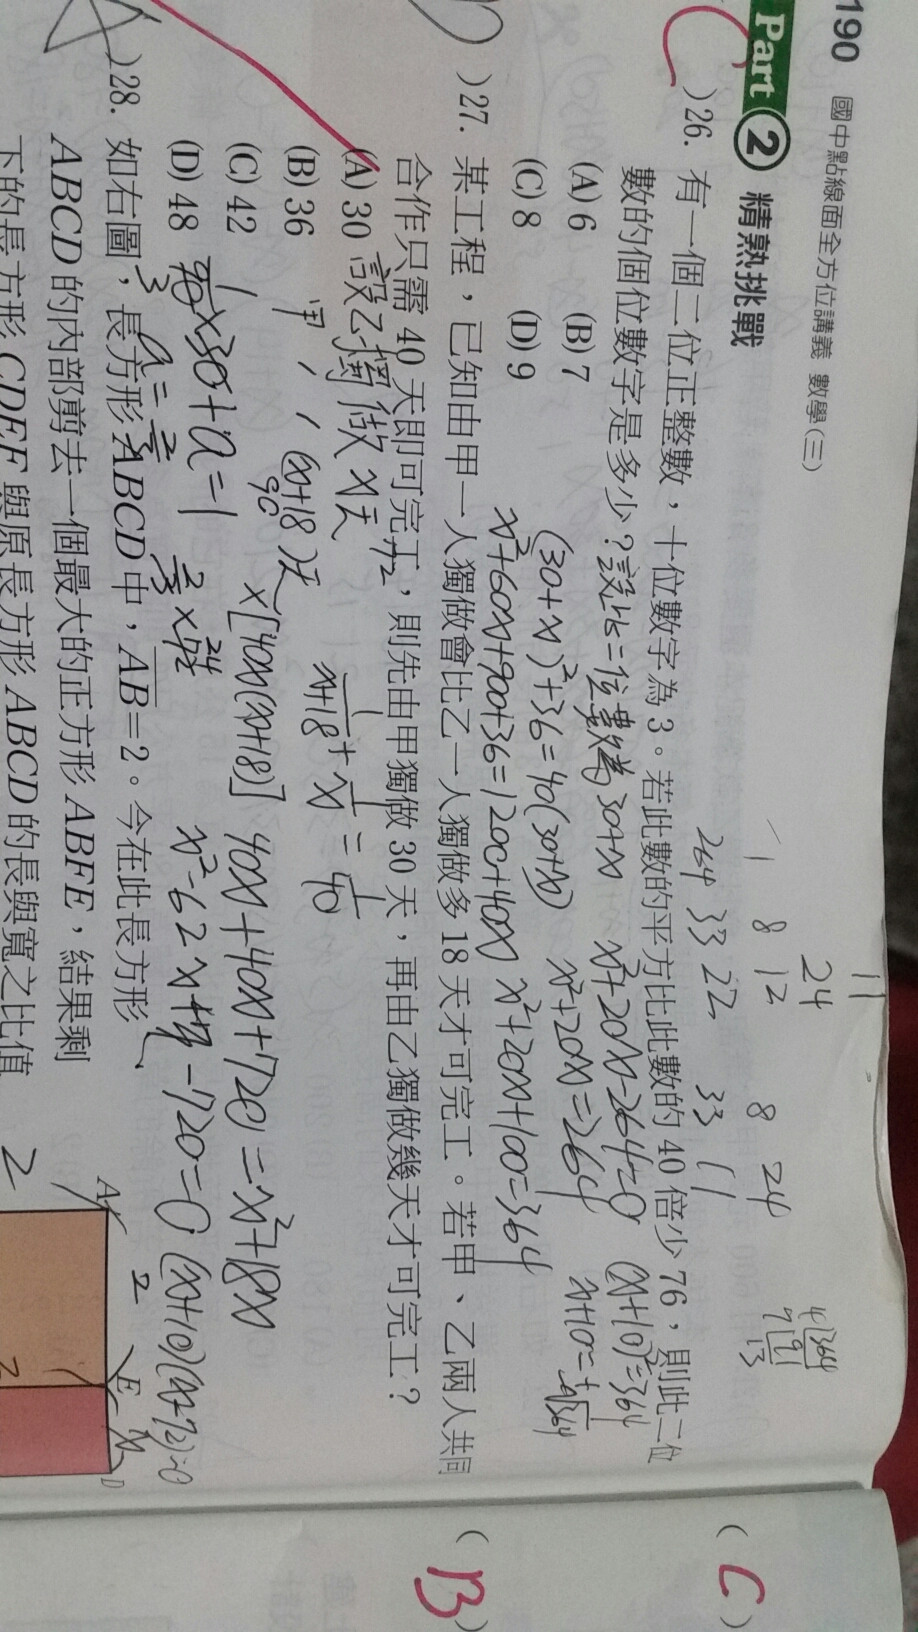 190 國中點線面全方位講義 數學(三)
Part 2 精熟挑戰
( C )26. 有一個二位正整數，十位數字為 3。若此數的平方比此數的 40 倍少 76，則此二位
數的個位數字是多少？設此二位數為 30+x
(A) 6 (B) 7
(C) 8 (D) 9
(30+x)²+36=40(30+x)
x²+60x+900+36=1200+40x
x²+20x-264=0
x²+20x=264
x²+20x+100=364
(x+10)²=364
x+10=±√364
( B )27. 某工程，已知由甲一人獨做會比乙一人獨做多 18 天才可完工。若甲、乙兩人共同
合作只需 40 天即可完工，則先由甲獨做 30 天，再由乙獨做幾天才可完工？
(A) 30 設乙獨做 x天
(B) 36 甲 (x+18)天
(C) 42
(D) 48
90
72
1/(x+18) + 1/x = 1/40
×[40x(x+18)] 40x+40x+720=x²+18x
x²-62x-720=0 (x+10)(x-72)=0
1/90×30+a=1
a=2/3
2/3×72
24
)28. 如右圖，長方形 ABCD 中，AB=2。今在此長方形
ABCD 的內部剪去一個最大的正方形 ABFE，結果剩
下的長方形 CDEF 與原長方形 ABCD 的長與寬之比值
A 2 E x D
2
11
24
1 8 12 8 24
264 33 22 33 11
4|364
7|91
13